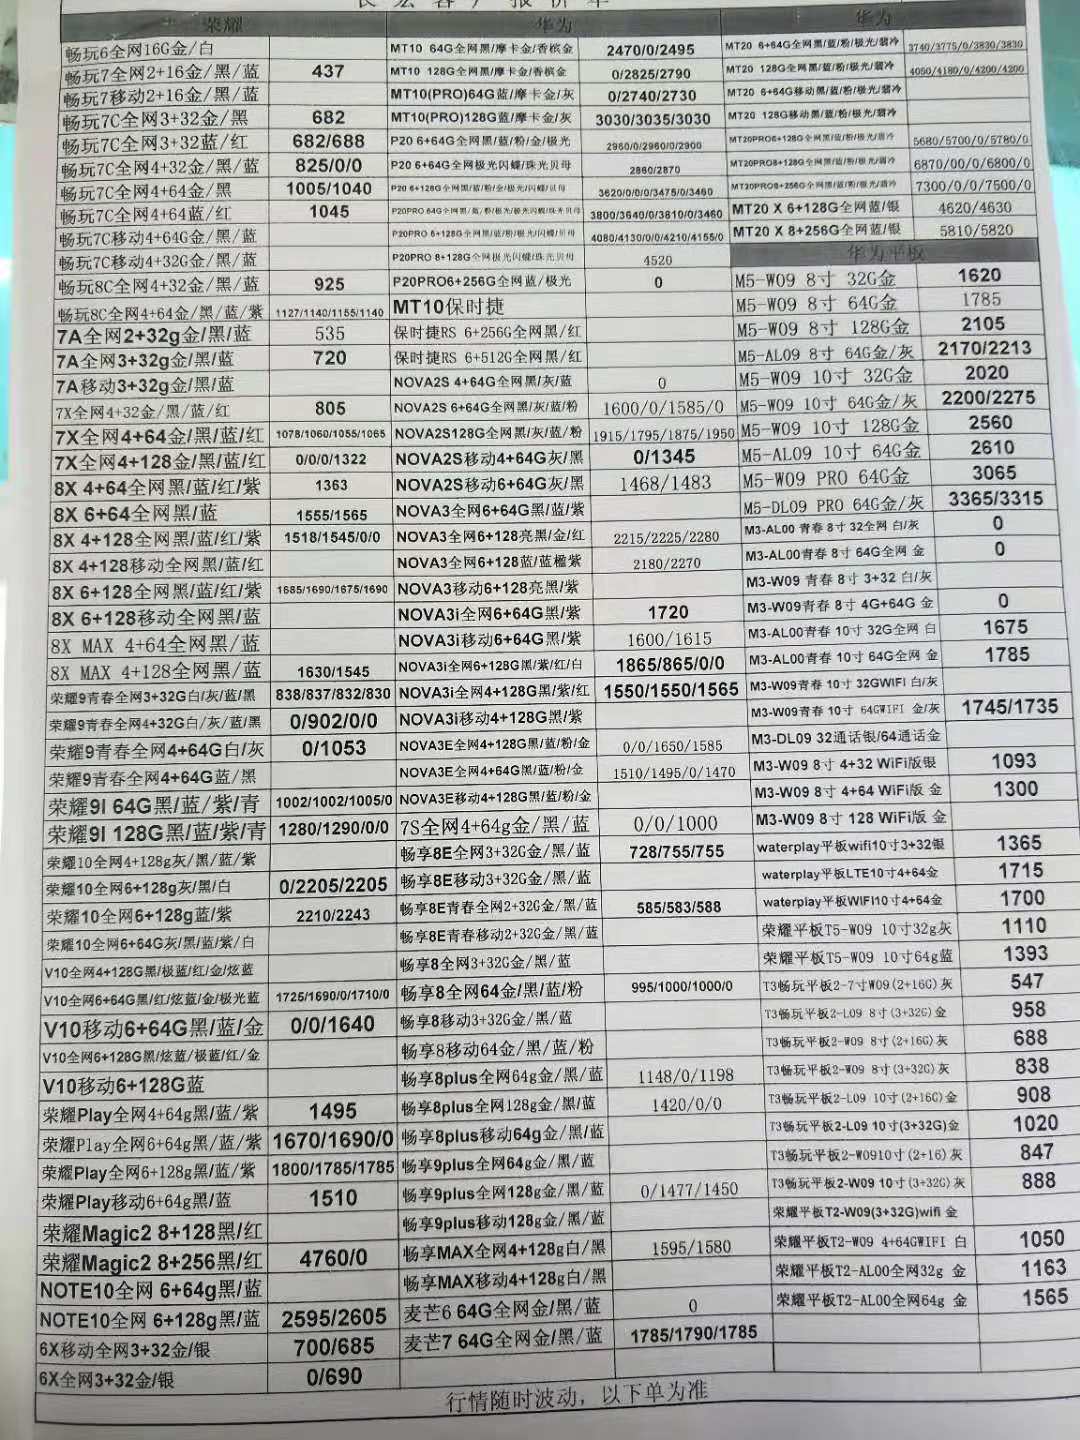 客户报价单
荣耀 华为 华为
畅玩6全网16G金/白
畅玩7全网2+16金/黑/蓝 437
畅玩7移动2+16金/黑/蓝
畅玩7C全网3+32金/黑 682
畅玩7C全网3+32蓝/红 682/688
畅玩7C全网4+32金/黑/蓝 825/0/0
畅玩7C全网4+64金/黑 1005/1040
畅玩7C全网4+64蓝/红 1045
畅玩7C移动4+64G金/黑/蓝
畅玩7C移动4+32G金/黑/蓝
畅玩8C全网4+32金/黑/蓝 925
畅玩8C全网4+64/金/黑/蓝/紫 1127/1140/1155/1140
7A全网2+32g金/黑/蓝 535
7A全网3+32g金/黑/蓝 720
7A移动3+32g金/黑/蓝
7X全网4+32金/黑/蓝/红 805
7X全网4+64金/黑/蓝/红 1078/1060/1055/1065
7X全网4+128金/黑/蓝/红 0/0/0/1322
8X 4+64全网黑/蓝/红/紫 1363
8X 6+64全网黑/蓝 1555/1565
8X 4+128全网黑/蓝/红/紫 1518/1545/0/0
8X 4+128移动全网黑/蓝/红
8X 6+128全网黑/蓝/红/紫 1685/1690/1675/1690
8X 6+128移动全网黑/蓝
8X MAX 4+64全网黑/蓝
8X MAX 4+128全网黑/蓝 1630/1545
荣耀9青春全网3+32G白/灰/蓝/黑 838/837/832/830
荣耀9青春全网4+32G白/灰/蓝/黑 0/902/0/0
荣耀9青春全网4+64G白/灰 0/1053
荣耀9青春全网4+64G蓝/黑
荣耀9I 64G黑/蓝/紫/青 1002/1002/1005/0
荣耀9I 128G黑/蓝/紫/青 1280/1290/0/0
荣耀10全网4+128g灰/黑/蓝/紫
荣耀10全网6+128g灰/黑/白 0/2205/2205
荣耀10全网6+128g蓝/紫 2210/2243
荣耀10全网6+64G灰/黑/蓝/紫/白
V10全网4+128G黑/极蓝/红/金/炫蓝
V10全网6+64G黑/红/炫蓝/金/极光蓝 1725/1690/0/1710/0
V10移动6+64G黑/蓝/金 0/0/1640
V10全网6+128G黑/炫蓝/极蓝/红/金
V10移动6+128G蓝
荣耀Play全网4+64g黑/蓝/紫 1495
荣耀Play全网6+64g黑/蓝/紫 1670/1690/0
荣耀Play全网6+128g黑/蓝/紫 1800/1785/1785
荣耀Play移动6+64g黑/蓝 1510
荣耀Magic2 8+128黑/红
荣耀Magic2 8+256黑/红 4760/0
NOTE10全网 6+64g黑/蓝
NOTE10全网 6+128g黑/蓝 2595/2605
6X移动全网3+32金/银 700/685
6X全网3+32金/银 0/690
MT10 64G全网黑/摩卡金/香槟金 2470/0/2495
MT10 128G全网黑/摩卡金/香槟金 0/2825/2790
MT10(PRO)64G蓝/摩卡金/灰 0/2740/2730
MT10(PRO)128G蓝/摩卡金/灰 3030/3035/3030
P20 6+64G全网黑/蓝/粉/金/极光 2960/0/2960/0/2900
P20 6+64G全网极光闪蝶/珠光贝母 2860/2870
P20 6+128G全网黑/蓝/粉/金/极光/闪蝶/贝母 3620/0/0/0/3475/0/3460
P20PRO 64G全网黑/蓝/粉/极光/极光闪蝶/珠光贝母 3800/3640/0/3810/0/3460
P20PRO 6+128G全网黑/蓝/粉/极光/闪蝶/贝母 4080/4130/0/0/4210/4155/0
P20PRO 8+128G全网极光闪蝶/珠光贝母 4520
P20PRO6+256G全网蓝/极光 0
MT10保时捷
保时捷RS 6+256G全网黑/红
保时捷RS 6+512G全网黑/红
NOVA2S 4+64G全网黑/灰/蓝 0
NOVA2S 6+64G全网黑/灰/蓝/粉 1600/0/1585/0
NOVA2S128G全网黑/灰/蓝/粉 1915/1795/1875/1950
NOVA2S移动4+64G灰/黑 0/1345
NOVA2S移动6+64G灰/黑 1468/1483
NOVA3全网6+64G黑/蓝/紫
NOVA3全网6+128亮黑/金/红 2215/2225/2280
NOVA3全网6+128蓝/蓝楹紫 2180/2270
NOVA3移动6+128亮黑/紫
NOVA3i全网6+64G黑/紫 1720
NOVA3i移动6+64G黑/紫 1600/1615
NOVA3i全网6+128G黑/紫/红/白 1865/865/0/0
NOVA3i全网4+128G黑/紫/红 1550/1550/1565
NOVA3i移动4+128G黑/紫
NOVA3E全网4+128G黑/蓝/粉/金 0/0/1650/1585
NOVA3E全网4+64G黑/蓝/粉/金 1510/1495/0/1470
NOVA3E移动4+128G黑/蓝/粉/金
7S全网4+64g金/黑/蓝 0/0/1000
畅享8E全网3+32G金/黑/蓝 728/755/755
畅享8E移动3+32G金/黑/蓝
畅享8E青春全网2+32G金/黑/蓝 585/583/588
畅享8E青春移动2+32G金/黑/蓝
畅享8全网3+32G金/黑/蓝
畅享8全网64金/黑/蓝/粉 995/1000/1000/0
畅享8移动3+32G金/黑/蓝
畅享8移动64金/黑/蓝/粉
畅享8plus全网64g金/黑/蓝 1148/0/1198
畅享8plus全网128g金/黑/蓝 1420/0/0
畅享8plus移动64g金/黑/蓝
畅享9plus全网64g金/黑/蓝
畅享9plus全网128g金/黑/蓝 0/1477/1450
畅享9plus移动128g金/黑/蓝
畅享MAX全网4+128g白/黑 1595/1580
畅享MAX移动4+128g白/黑
麦芒6 64G全网金/黑/蓝 0
麦芒7 64G全网金/黑/蓝 1785/1790/1785
MT20 6+64G全网黑/蓝/粉/极光/翡冷 3740/3775/0/3830/3830
MT20 128G全网黑/蓝/粉/极光/翡冷 4050/4180/0/4200/4200
MT20 6+64G移动黑/蓝/粉/极光/翡冷
MT20 128G移动黑/蓝/粉/极光/翡冷
MT20PRO6+128G全网黑/蓝/粉/极光/翡冷 5680/5700/0/5780/0
MT20PRO8+128G全网黑/蓝/粉/极光/翡冷 6870/00/0/6800/0
MT20PRO8+256G全网黑/蓝/粉/极光/翡冷 7300/0/0/7500/0
MT20 X 6+128G全网蓝/银 4620/4630
MT20 X 8+256G全网蓝/银 5810/5820
华为平板
M5-W09 8寸 32G金 1620
M5-W09 8寸 64G金 1785
M5-W09 8寸 128G金 2105
M5-AL09 8寸 64G金/灰 2170/2213
M5-W09 10寸 32G金 2020
M5-W09 10寸 64G金/灰 2200/2275
M5-W09 10寸 128G金 2560
M5-AL09 10寸 64G金 2610
M5-W09 PRO 64G金 3065
M5-DL09 PRO 64G金/灰 3365/3315
M3-AL00 青春 8寸 32全网 白/灰 0
M3-AL00青春 8寸 64G全网 金 0
M3-W09 青春 8寸 3+32 白/灰
M3-W09青春 8寸 4G+64G 金 0
M3-AL00青春 10寸 32G全网 白 1675
M3-AL00青春 10寸 64G全网 金 1785
M3-W09青春 10寸 32GWIFI 白/灰
M3-W09青春 10寸 64GWIFI 金/灰 1745/1735
M3-DL09 32通话银/64通话金
M3-W09 8寸 4+32 WiFi版银 1093
M3-W09 8寸 4+64 WiFi版 金 1300
M3-W09 8寸 128 WiFi版 金
waterplay平板wifi10寸3+32银 1365
waterplay平板LTE10寸4+64金 1715
waterplay平板WIFI10寸4+64金 1700
荣耀平板T5-W09 10寸32g灰 1110
荣耀平板T5-W09 10寸64g蓝 1393
T3畅玩平板2-7寸W09(2+16G)灰 547
T3畅玩平板2-L09 8寸(3+32G)金 958
T3畅玩平板2-W09 8寸(2+16G)灰 688
T3畅玩平板2-W09 8寸(3+32G)灰 838
T3畅玩平板2-L09 10寸(2+16G)金 908
T3畅玩平板2-L09 10寸(3+32G)金 1020
T3畅玩平板2-W0910寸(2+16)灰 847
T3畅玩平板2-W09 10寸(3+32G)灰 888
荣耀平板T2-W09(3+32G)wifi 金
荣耀平板T2-W09 4+64GWIFI 白 1050
荣耀平板T2-AL00全网32g 金 1163
荣耀平板T2-AL00全网64g 金 1565
行情随时波动，以下单为准